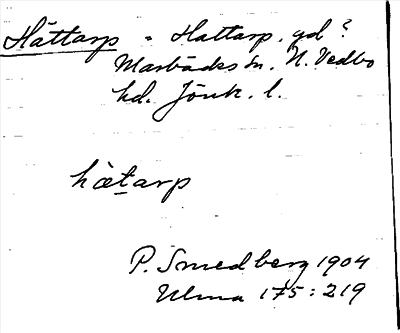 Hättarp = Hattarp, gd?
Marbäcks sn. N. Vedbo
hd. Jönk. l.
hætarp
P. Smedberg 1904
Ulma 175:219